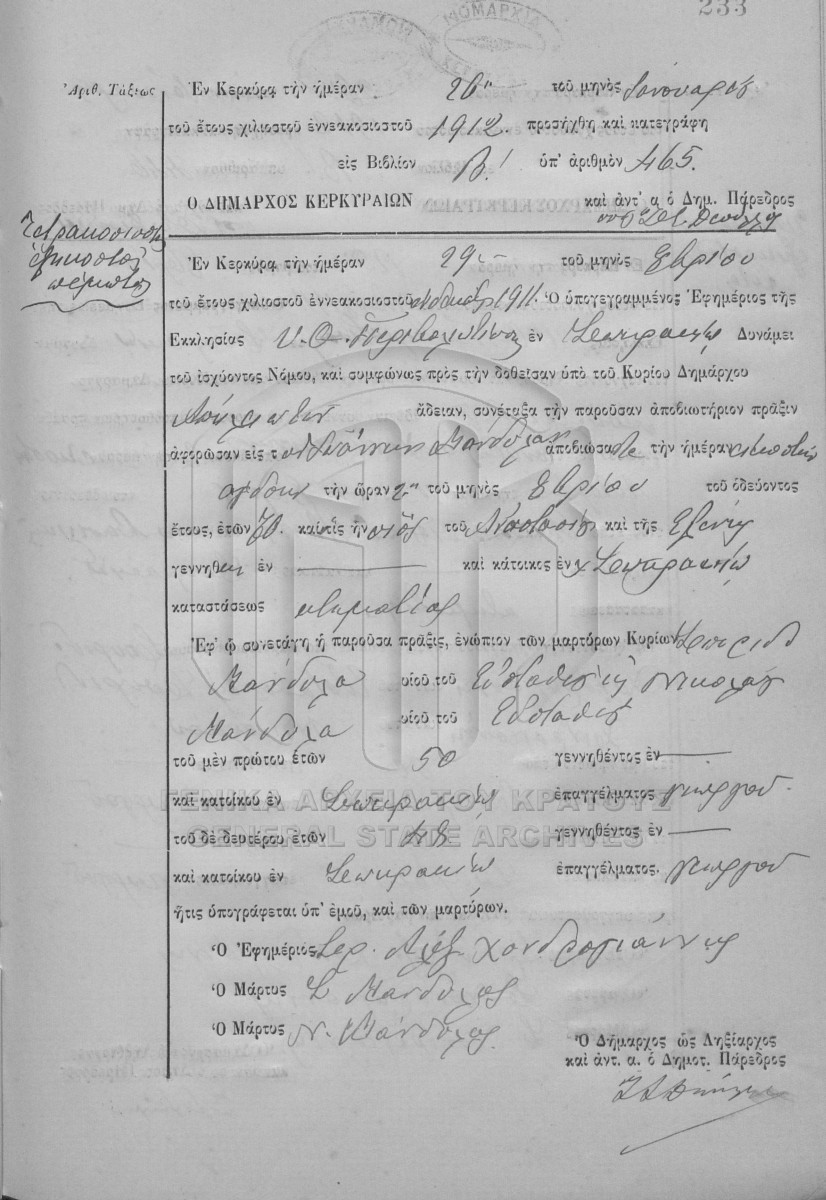 233
Ἀριθ. Τάξεως
Ἐν Κερκύρᾳ τὴν ἡμέραν 20ην τοῦ μηνὸς Ἰανουαρίου
τοῦ ἔτους χιλιοστοῦ ἐννεακοσιοστοῦ 1912. προσήχθη καὶ κατεγράφη
εἰς Βιβλίον Β! ὑπ' ἀριθμὸν 465.
Ὁ ΔΗΜΑΡΧΟΣ ΚΕΡΚΥΡΑΙΩΝ καὶ ἀντ' α. ὁ Δημ. Πάρεδρος
Τετρακοσιοστὴ
ἑξηκοστὴ
πέμπτη
Ἐν Κερκύρᾳ τὴν ἡμέραν 29 τοῦ μηνὸς 8βρίου
τοῦ ἔτους χιλιοστοῦ ἐννεακοσιοστοῦ 1911. Ὁ ὑπογεγραμμένος Ἐφημέριος τῆς
Ἐκκλησίας Υ. Θ. Περιβολιωτίσσης ἐν Δυνάμει
τοῦ ἰσχύοντος Νόμου, καὶ συμφώνως πρὸς τὴν δοθεῖσαν ὑπὸ τοῦ Κυρίου Δημάρχου
ἄδειαν, συνέταξα τὴν παροῦσαν ἀποβιωτήριον πρᾶξιν
ἀφορῶσαν εἰς τὸν Ἰωάννην Μάνδυλαν ἀποβιώσαντα τὴν ἡμέραν εἰκοστὴν
ὀγδόην τὴν ὥραν 2αν τοῦ μηνὸς 8βρίου τοῦ ὁδεύοντος
ἔτους, ἐτῶν 70. καὶ τις ἦν υἱὸς τοῦ Ἀναστασίου καὶ τῆς Ἑλένης
γεννηθεὶς ἐν — καὶ κάτοικος ἐν
καταστάσεως κτηματίας
Ἐφ' ᾧ συνετάγη ἡ παροῦσα πρᾶξις, ἐνώπιον τῶν μαρτύρων Κυρίων Σπυρίδ
Μάνδυλα υἱοῦ τοῦ Εὐσταθίου κ Νικολάου
Μάνδυλα υἱοῦ τοῦ Εὐσταθίου
τοῦ μὲν πρώτου ἐτῶν 50 γεννηθέντος ἐν —
καὶ κατοίκου ἐν ἐπαγγέλματος γεωργοῦ.
ΓΕΝΙΚΑ ΑΡΧΕΙΑ ΤΟΥ ΚΡΑΤΟΥΣ
τοῦ δὲ δευτέρου ἐτῶν 48 γεννηθέντος ἐν —
GENERAL STATE ARCHIVES
καὶ κατοίκου ἐν ἐπαγγέλματος. γεωργοῦ
ἥτις ὑπογράφεται ὑπ' ἐμοῦ, καὶ τῶν μαρτύρων.
Ὁ Ἐφημέριος Ἱερ. Ἀλέξ. Χονδρογιάννης
Ὁ Μάρτυς Σ Μάνδυλας
Ὁ Μάρτυς Ν. Μάνδυλας
Ὁ Δήμαρχος ὡς Ληξίαρχος
καὶ ἀντ. α. ὁ Δημοτ. Πάρεδρος